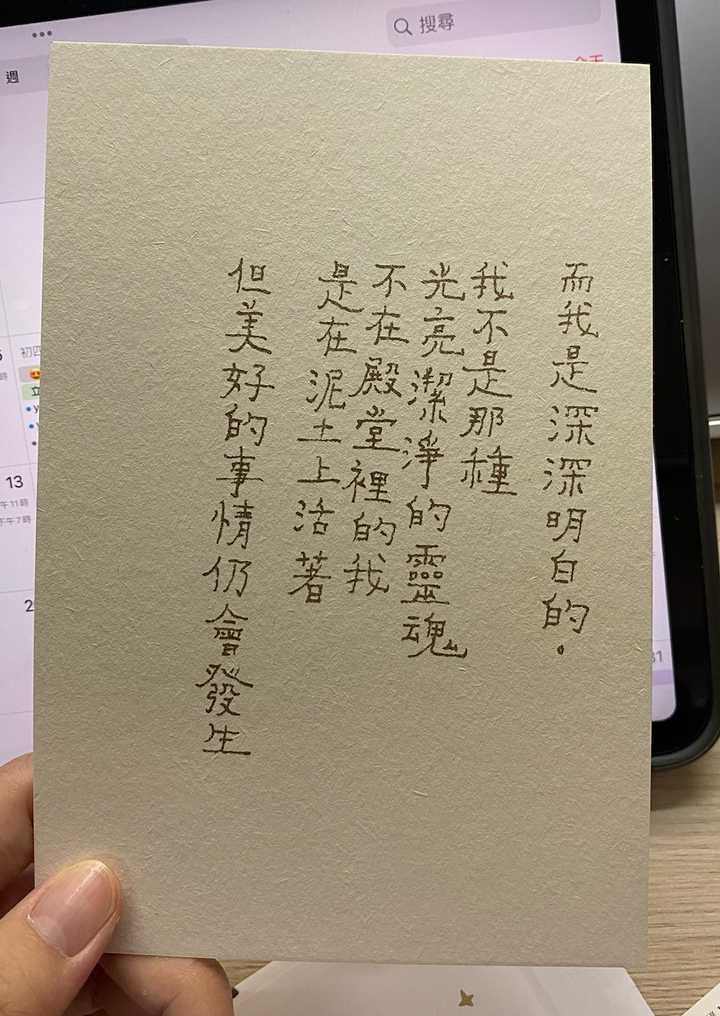 而我是深深明白的.
我不是那種
光亮潔淨的靈魂
不在殿堂裡的我
是在泥土上活著
但美好的事情仍會發生
搜尋
週
今天
初四
立
13
午11時
下午7時
2
31